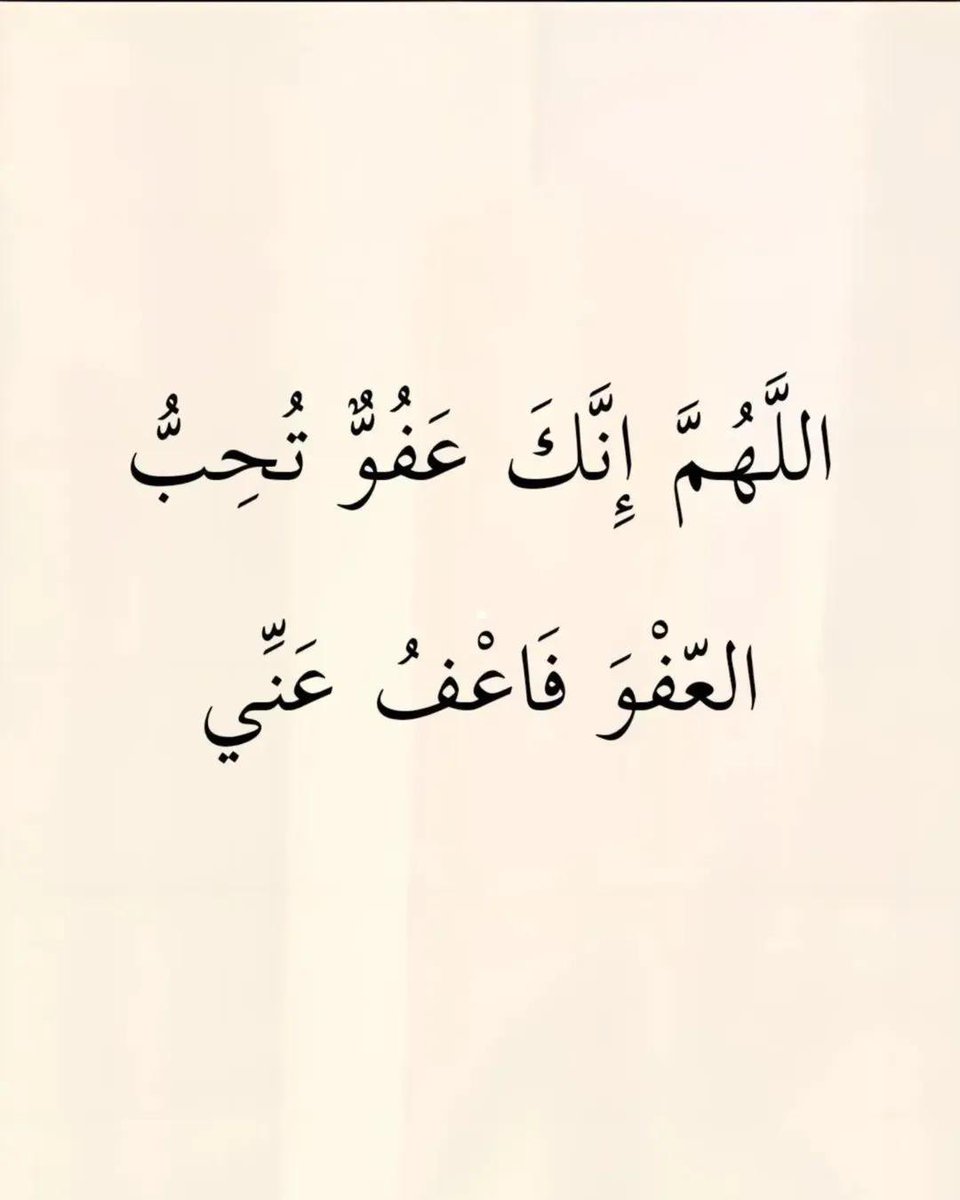 اللَّهُمَّ إِنَّكَ عَفُوٌّ تُحِبُّ
العّفْوَ فَاعْفُ عَنِّي